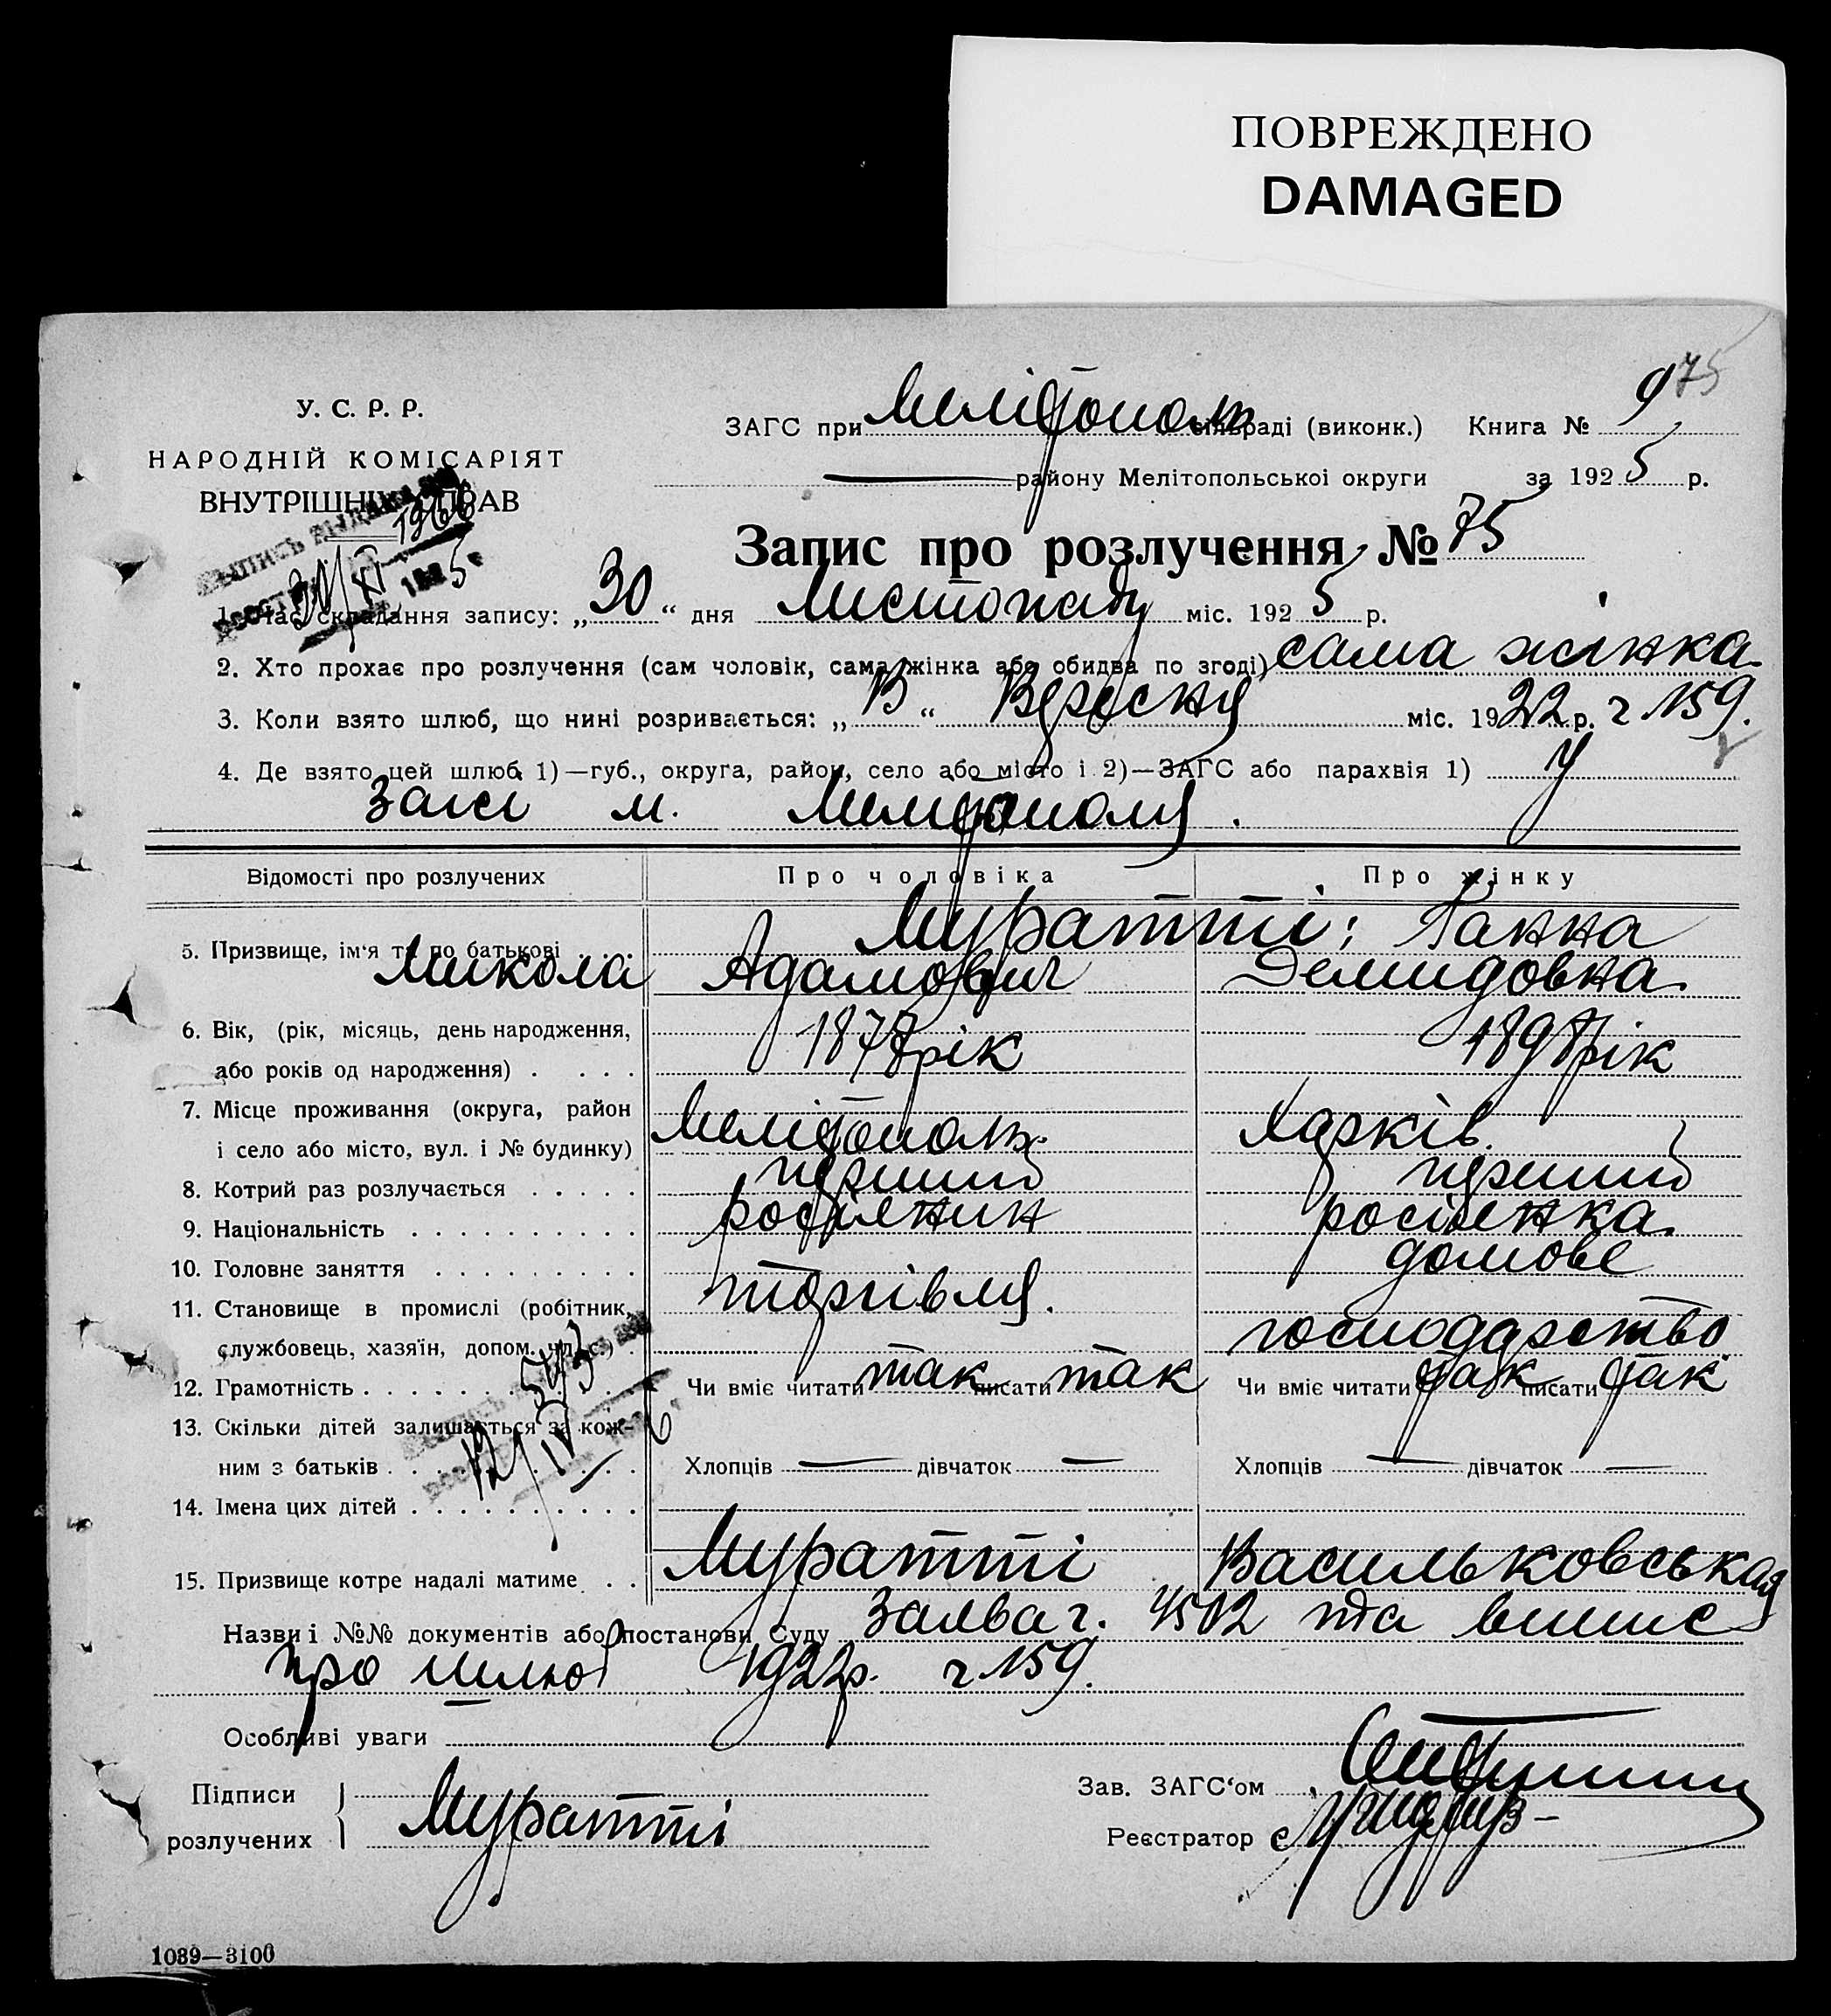 ПОВРЕЖДЕНО
DAMAGED
975
У. С. Р. Р.
НАРОДНІЙ КОМІСАРІЯТ
ВНУТРІШНІХ СПРАВ
ЗАГС при Мелітополь сільраді (виконк.) Книга № 9
району Мелітопольської округи за 1925 р.
Запис про розлучення № 75
1966
30/XI 1925
1. Час складання запису: „30“ дня Листопаду міс. 1925 р.
2. Хто прохає про розлучення (сам чоловік, сама жінка або обидва по згоді) сама жінка.
3. Коли взято шлюб, що нині розривається: „ “ Вересня міс. 1922 р. ч 159.
4. Де взято цей шлюб 1)—губ., округа, район, село або місто і 2)—ЗАГС або парахвія 1) у
Загсі м. Мелітополя.
Відомості про розлучених Про чоловіка Про жінку
5. Призвище, ім'я та по батькові Муратті: Ганна
Микола Адамович Демидовна
6. Вік, (рік, місяць, день народження,
або років од народження) . . . . 1877 рік 1897 рік
7. Місце проживання (округа, район
і село або місто, вул. і № будинку) Мелітополь. Харків.
8. Котрий раз розлучається . . . . . перший перший
9. Національність . . . . . . . . . . росіянин росіянка.
10. Головне заняття . . . . . . . . . домове
11. Становище в промислі (робітник, торгівля.
службовець, хазяїн, допом. чл. с.) . господарство
12. Грамотність . . . . . . . . . . . Чи вміє читати так писати так Чи вміє читати так писати так
543
13. Скільки дітей залишається за кож-
ним з батьків . . . . . . . . . . Хлопців — дівчаток — Хлопців — дівчаток —
12/IV 1926
14. Імена цих дітей . . . . . . . . . .
15. Призвище котре надалі матиме . . Муратті Васильковськая
Назви і №№ документів або постанови Суду Заява ч. 4502 та випис
про шлюб 1922р. ч 159.
Особливі уваги
Підписи
розлучених Муратті
Зав. ЗАГС'ом
Реєстратор
1039—3100